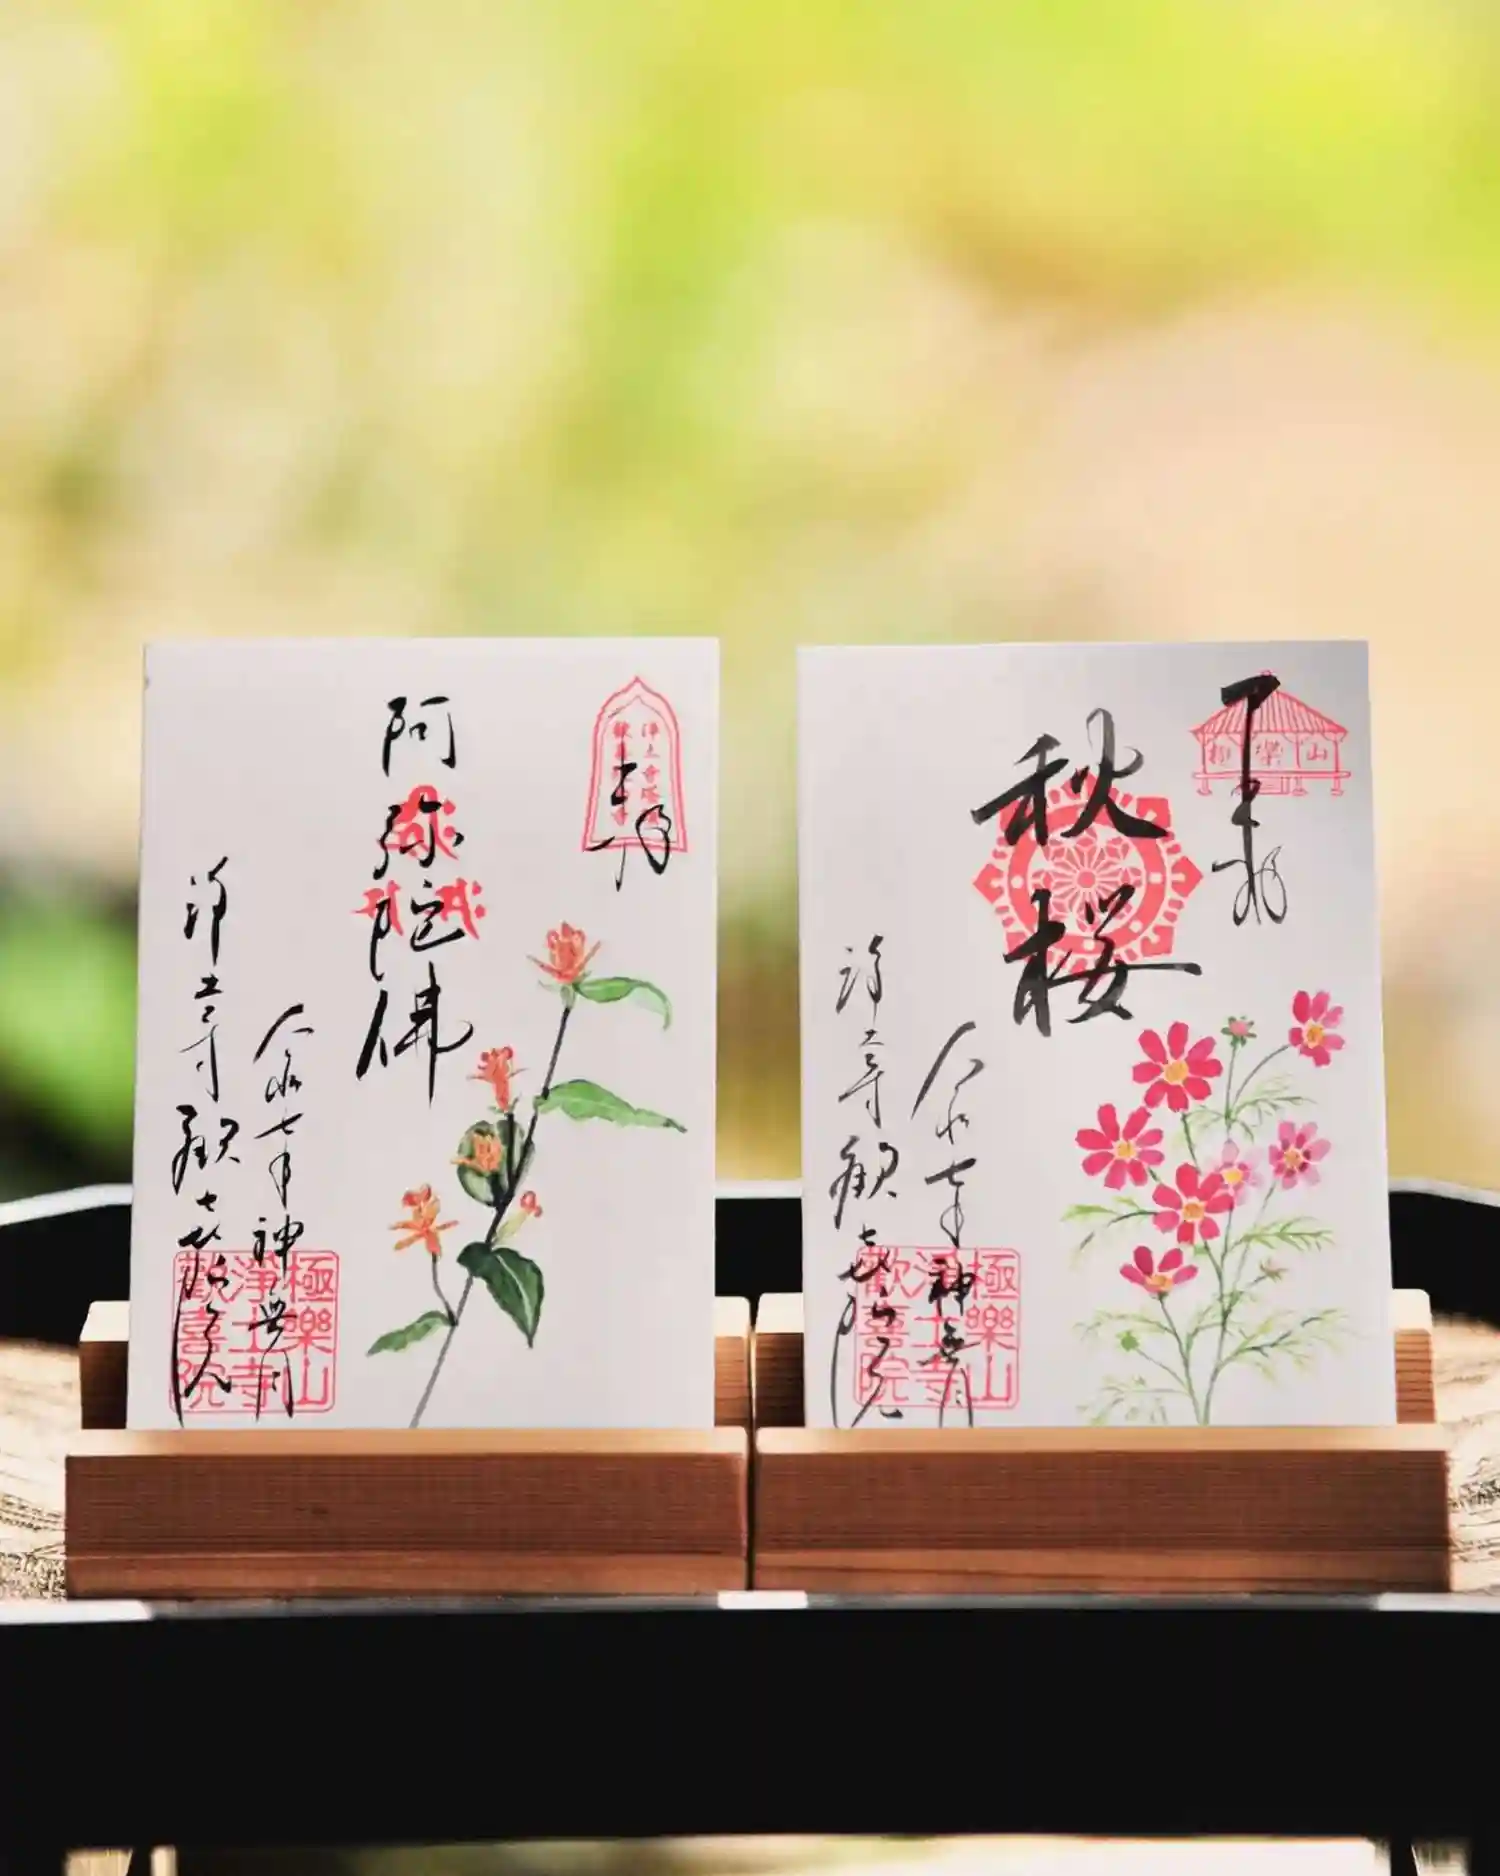 阿弥陀佛
令和七年神無月
浄土寺歓喜院
極樂山
淨土寺
歡喜院
極樂山
秋桜
令和七年神無月
浄土寺歓喜院
極樂山
淨土寺
歡喜院